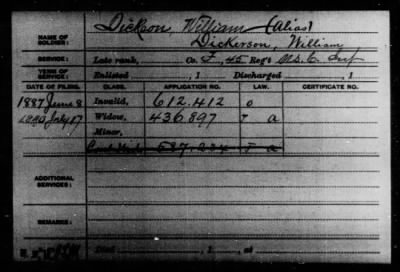 NAME OF SOLDIER: Dickson, William (alias)
Dickerson, William
SERVICE: Late rank, Co. F, 45 Reg't U.S.C. Inf
TERM OF SERVICE: Enlisted , 1 Discharged , 1
DATE OF FILING. CLASS. APPLICATION NO. LAW. CERTIFICATE NO.
1887 June 8 Invalid, 612.412 O
1890 July 17 Widow, 436.897 T a
Minor,
587.234 T a
ADDITIONAL SERVICES:
REMARKS:
Died , 1 , at